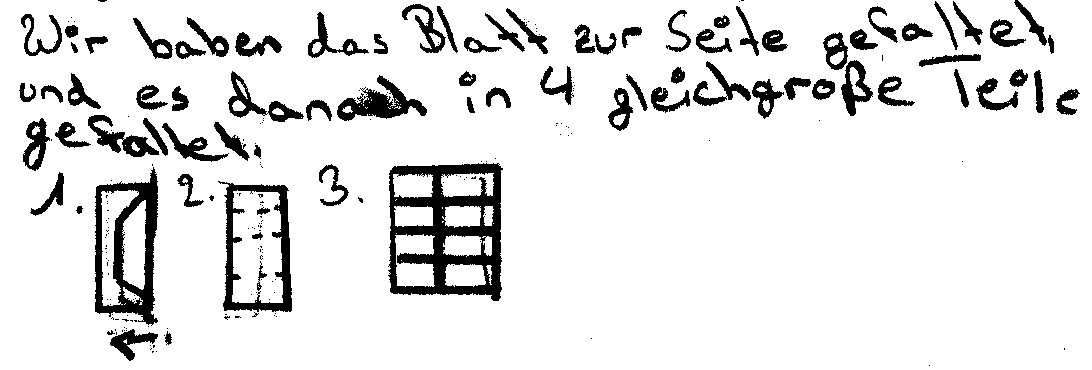 Wir haben das Blatt zur Seite gefaltet,
und es danach in 4 gleichgroße Teile
gefaltet.
1. 2. 3.